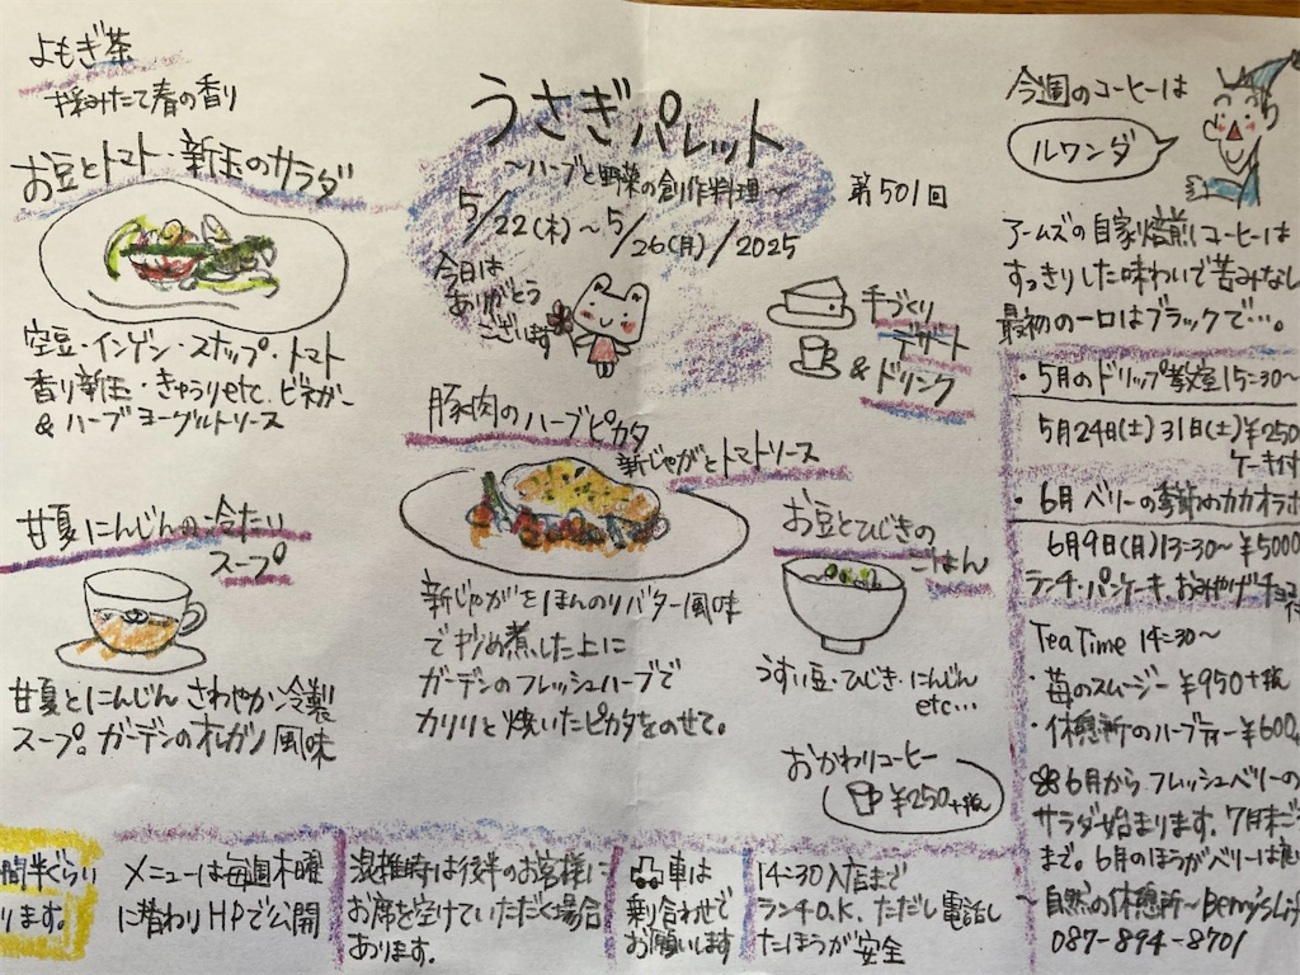 よもぎ茶
摘みたて春の香り
お豆とトマト・新玉のサラダ
空豆・インゲン・スナップ・トマト
香り新玉・きゅうりetc. ビネガー
&ハーブヨーグルトソース
甘夏にんじんの冷たい
スープ
甘夏とにんじん さわやか冷製
スープ。ガーデンのオレガノ風味
うさぎパレット
〜ハーブと野菜の創作料理〜
第501回
5/22(木)〜5/26(月)/2025
今日は
ありがとう
ございます
豚肉のハーブピカタ
新じゃがとトマトソース
新じゃがをほんのりバター風味
で炒め煮した上に
ガーデンのフレッシュハーブで
カリリと焼いたピカタをのせて。
手づくり
デザート
&ドリンク
お豆とひじきの
ごはん
うすい豆・ひじき・にんじん
etc…
おかわりコーヒー
¥250+税
今週のコーヒーは
ルワンダ
アームズの自家焙煎コーヒーは
すっきりした味わいで苦みなし
最初の一口はブラックで…。
・5月のドリップ教室15:30〜
5月24日(土)31日(土)¥250
ケーキ付
・6月 ベリーの季節のカカオラボ
6月9日(月)13:30〜¥5000
ランチ・パンケーキ・おみやげチョコ
付
Tea Time 14:30〜
・苺のスムージー ¥950+税
・休憩所のハーブティー¥600
6月から フレッシュベリーの
サラダ始まります。7月末ご
まで。6月のほうがベリーは
〜自然の休憩所〜Berry's Lif
087-894-8701
間半ぐらい
ります。
メニューは毎週木曜
に替わりHPで公開
混雑時は後半のお客様に
お席を空けていただく場合
あります。
車は
乗り合わせで
お願いします
14:30入店まで
ランチO.K. ただし電話し
たほうが安全